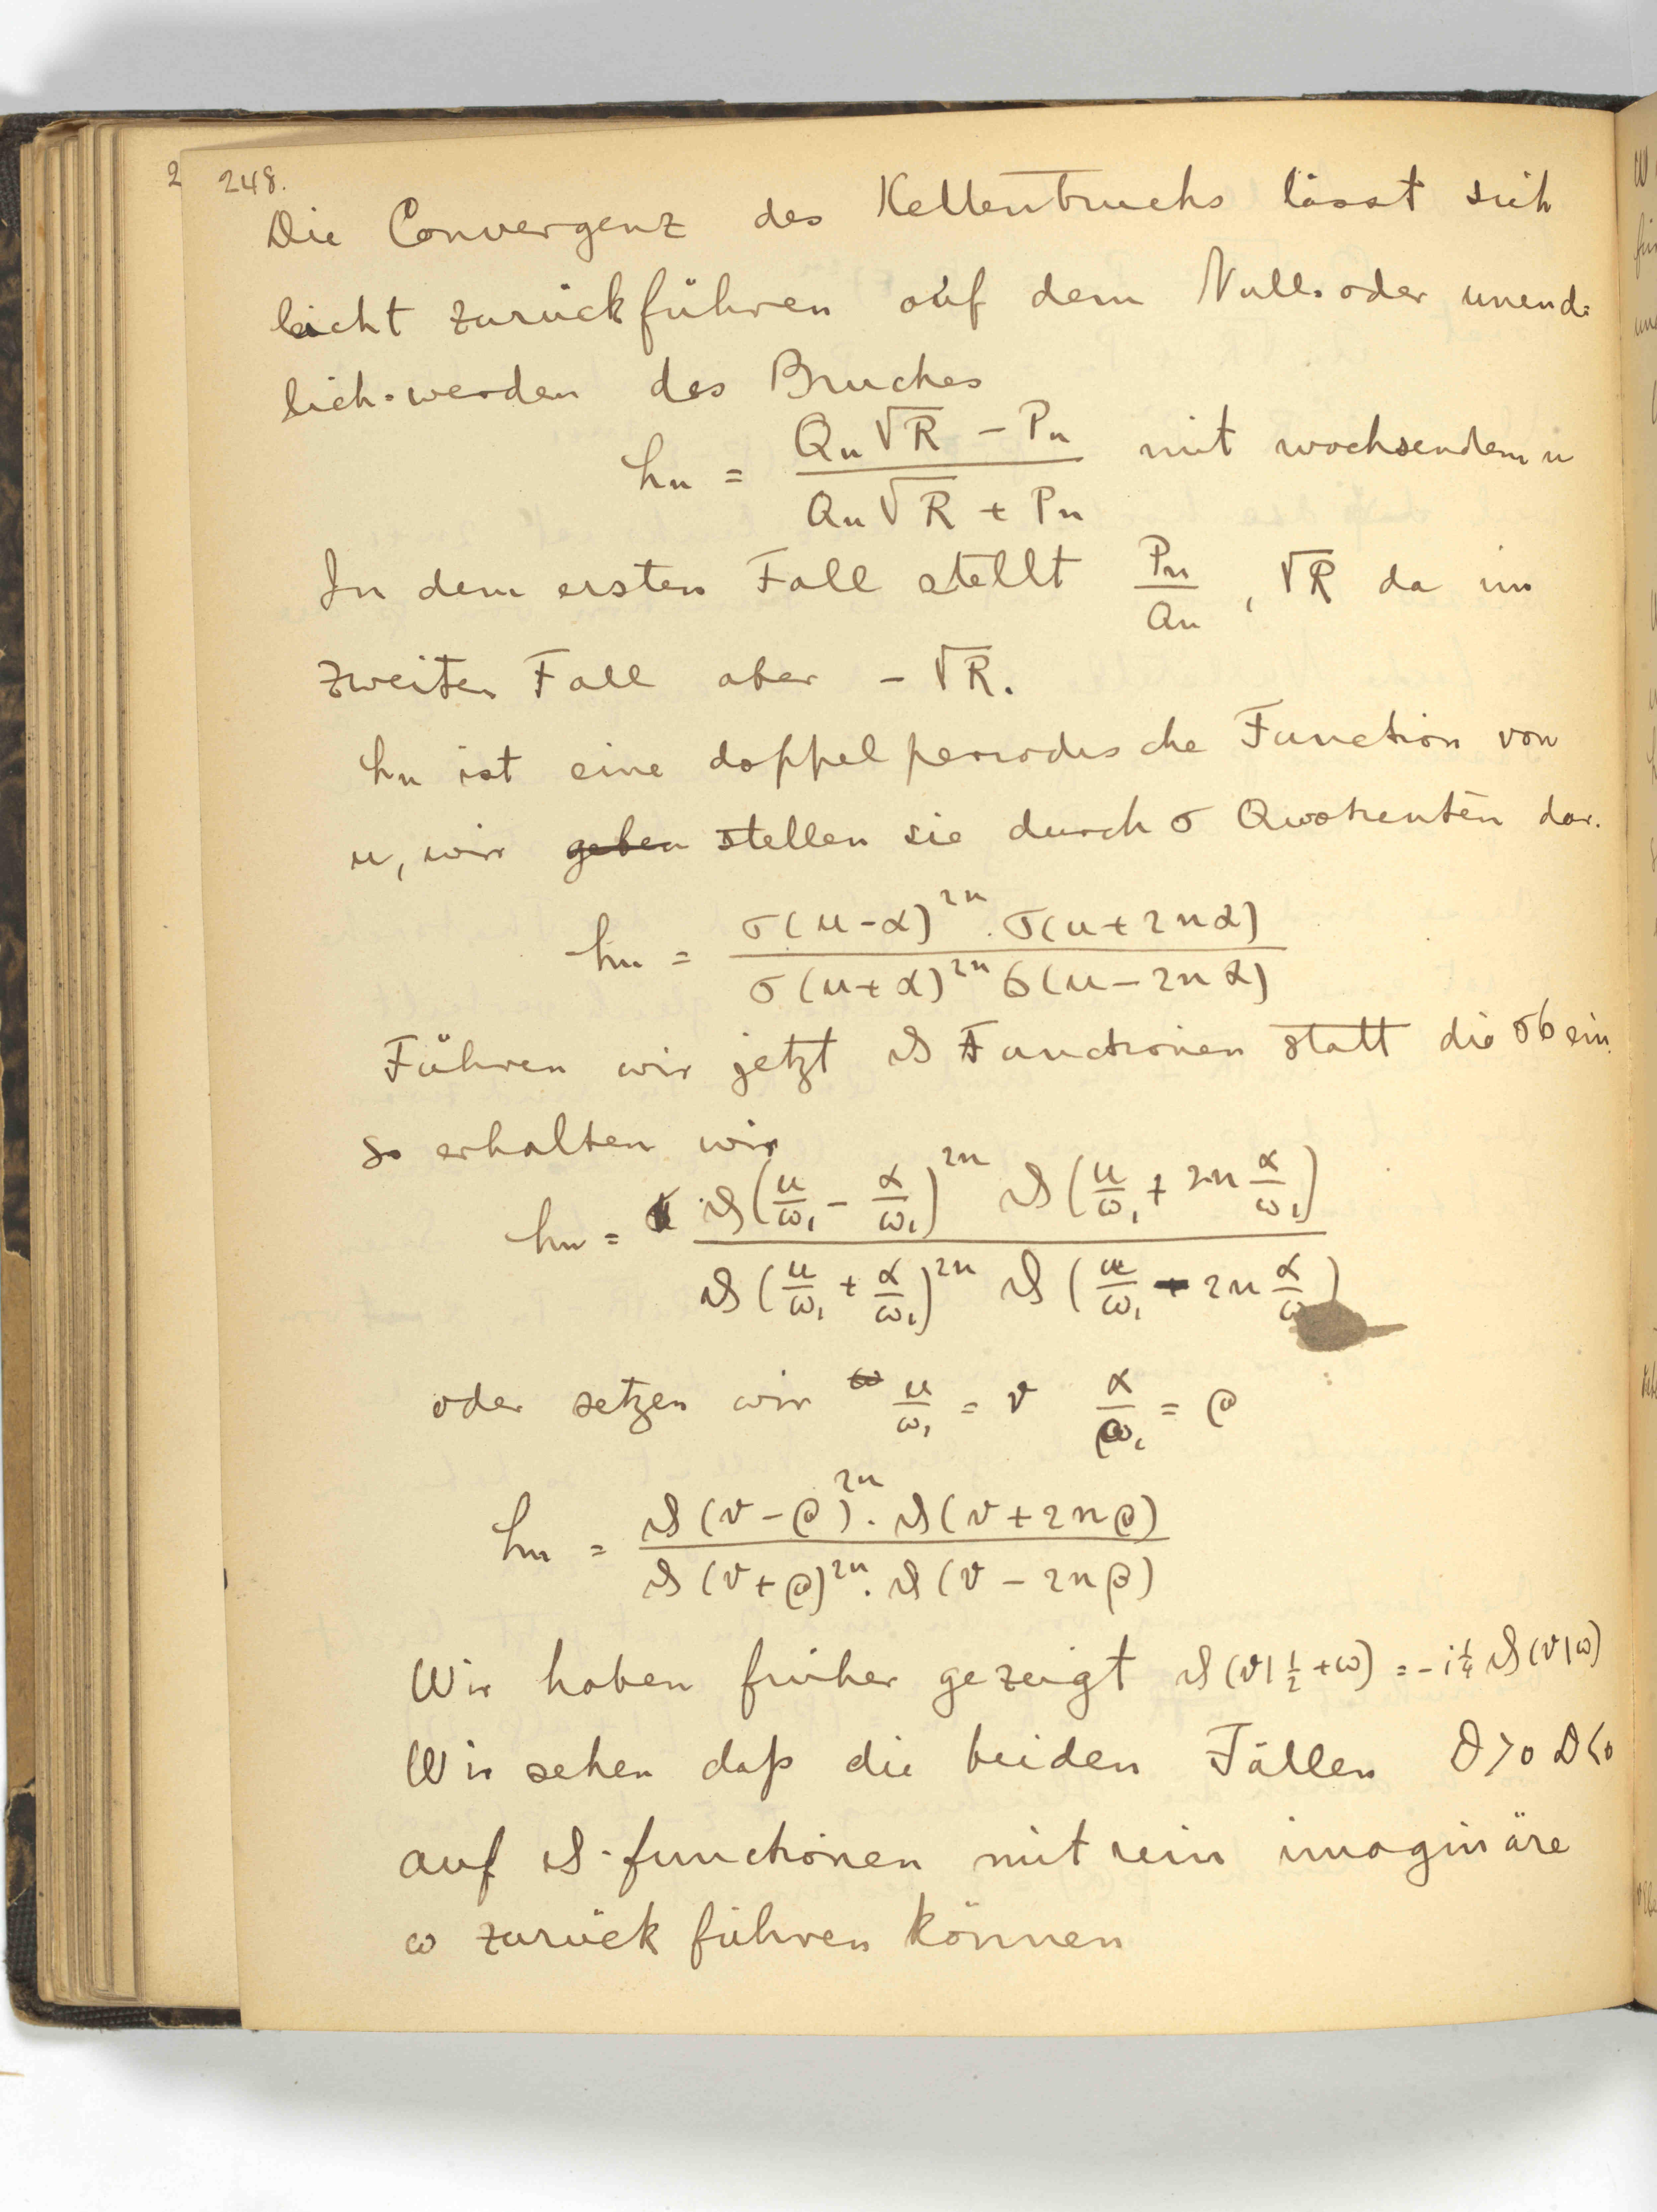 248.
Die Convergenz des Kettenbruchs lässt sich
leicht zurückführen auf dem Null- oder unend-
lich-werden des Bruches
hn = (Qn√R − Pn) / (Qn√R + Pn) mit wachsendem n
In dem ersten Fall stellt Pn/Qn, √R da im
zweiten Fall aber −√R.
hn ist eine doppelperiodische Function von
u, wir geben stellen sie durch σ Quotienten dar.
hn = σ(u−α)^2n . σ(u+2nα) / σ(u+α)^2n σ(u−2nα)
Führen wir jetzt ϑ Functionen statt die σ ein
so erhalten wir
hn = ϑ(u/ω₁ − α/ω₁)^2n ϑ(u/ω₁ + 2n α/ω₁) / ϑ(u/ω₁ + α/ω₁)^2n ϑ(u/ω₁ − 2n α/ω)
oder setzen wir u/ω₁ = v α/ω₁ = ρ
hn = ϑ(v−ρ)^2n . ϑ(v+2nρ) / ϑ(v+ρ)^2n . ϑ(v−2nρ)
Wir haben früher gezeigt ϑ(v|½+ω) = −i¼ ϑ(v|ω)
Wir sehen daß die beiden Fällen D>0 D<0
auf ϑ-functionen mit rein imaginäre
ω zurück führen können